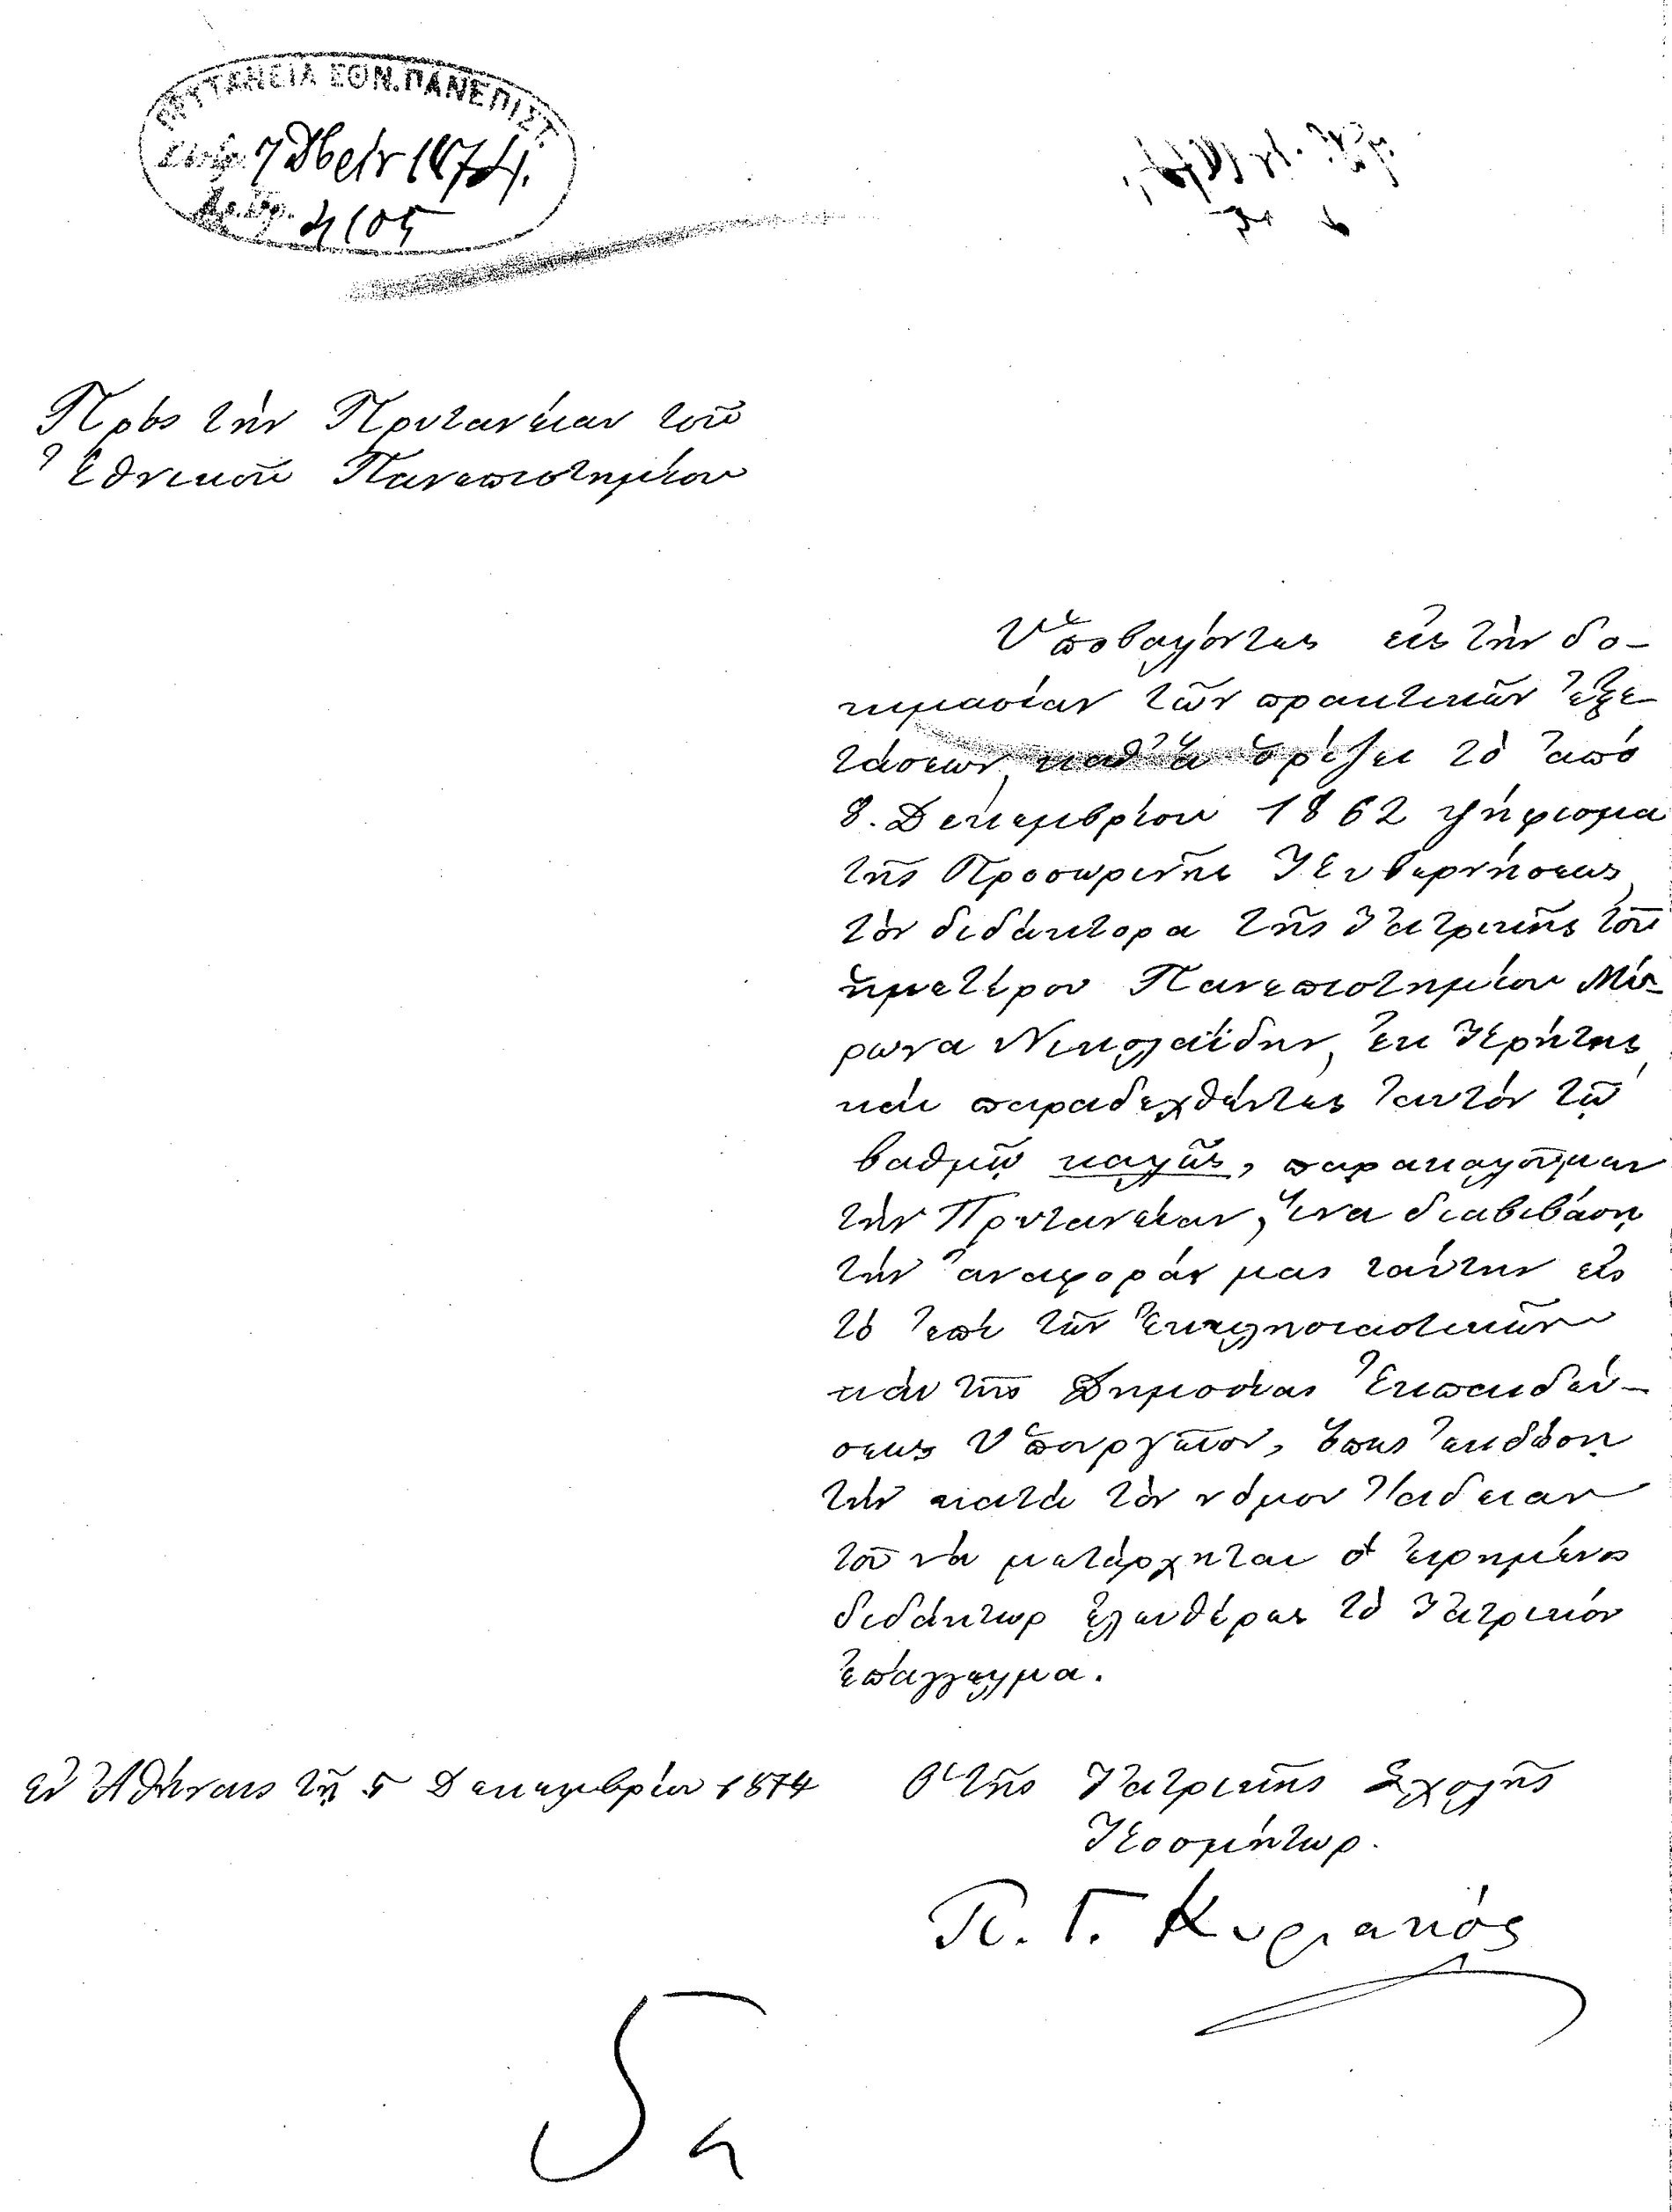 ΠΡΥΤΑΝΕΙΑ ΕΘΝ. ΠΑΝΕΠΙΣΤ.
7 Δβρίου 1874.
Πρὸς τὴν Πρυτανείαν τοῦ
Ἐθνικοῦ Πανεπιστημίου
Ὑποβαλόντες εἰς τὴν δο-
κιμασίαν τῶν πρακτικῶν ἐξε
τάσεων, καθ' ἃ ὁρίζει τὸ ἀπὸ
8. Δεκεμβρίου 1862 ψήφισμα
τῆς Προσωρινῆς Κυβερνήσεως,
τὸν διδάκτορα τῆς Ἰατρικῆς τοῦ
ἡμετέρου Πανεπιστημίου Μύ-
ρωνα Νικολαΐδην, ἐκ Κρήτης,
καὶ παραδεχθέντες αὐτὸν τῷ
βαθμῷ καλῶς, παρακαλοῦμεν
τὴν Πρυτανείαν, ἵνα διαβιβάσῃ
τὴν ἀναφοράν μας ταύτην εἰς
τὸ ἐπὶ τῶν Ἐκκλησιαστικῶν
καὶ τῆς Δημοσίας Ἐκπαιδεύ-
σεως Ὑπουργεῖον, ὅπως ἐκδώσῃ
τὴν κατὰ τὸν νόμον ἄδειαν
τοῦ νὰ μετέρχηται ὁ εἰρημένος
διδάκτωρ ἐλευθέρως τὸ ἰατρικὸν
ἐπάγγελμα.
ἐν Ἀθήναις τῇ 5 Δεκεμβρίου 1874
Ὁ τῆς Ἰατρικῆς Σχολῆς
Κοσμήτωρ.
Π. Γ. Κυριακός